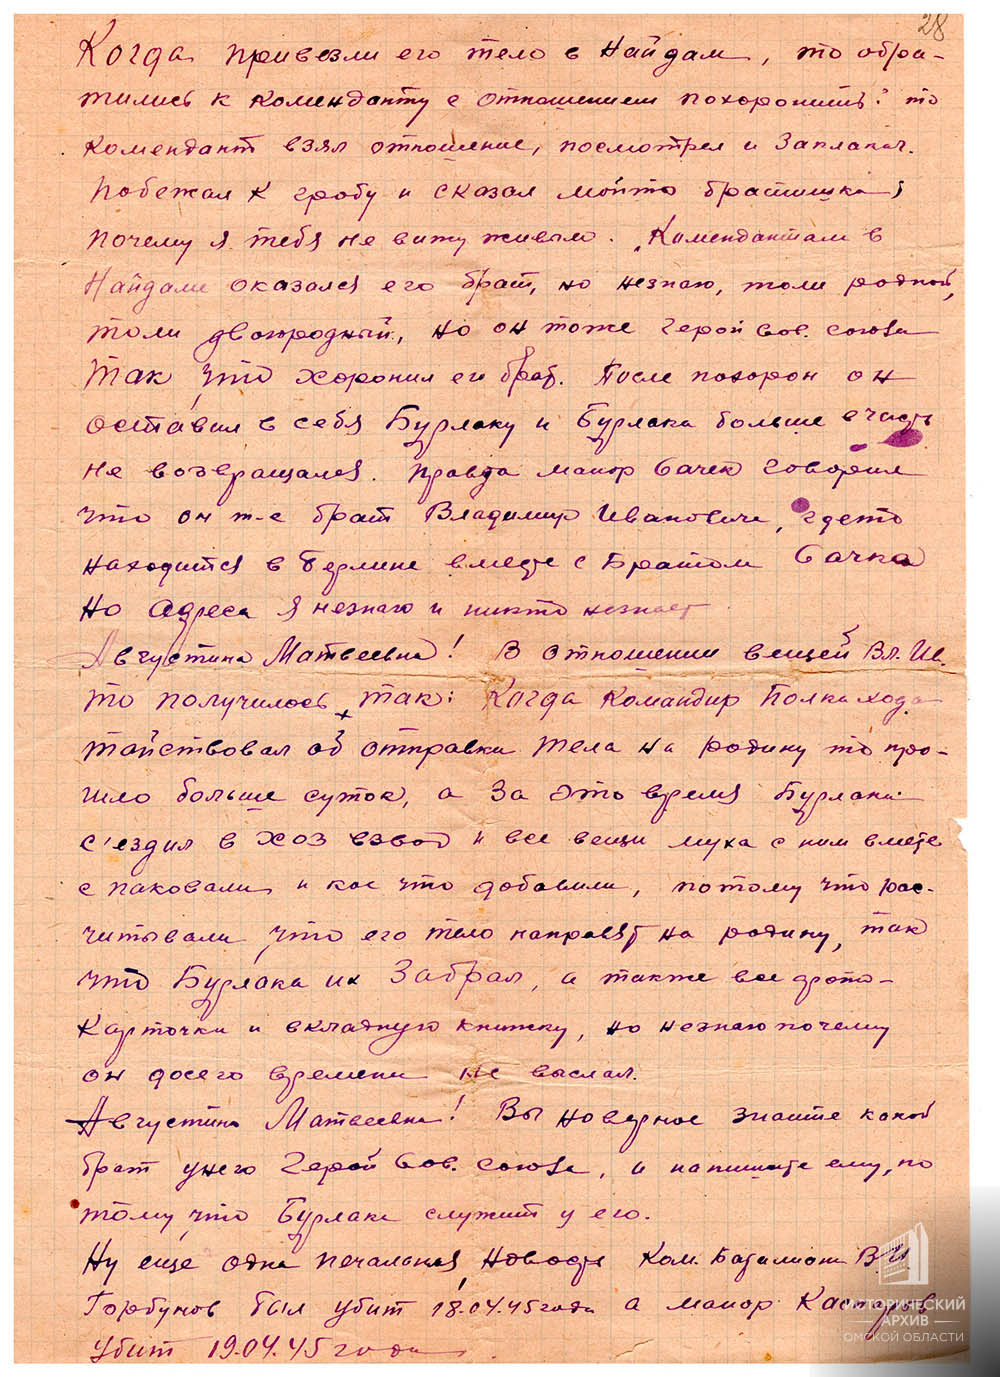 28
Когда привезли его тело в Найдам, то обра-
тились к коменданту с отношением похоронить: то
комендант взял отношение, посмотрел и заплакал.
Побежал к гробу и сказал мой то братишка,
почему я тебя не вижу живым. Комендантом в
Найдами оказался его брат, но незнаю, толи родной,
толи двоюродный, но он тоже Герой Сов. союза
так что хоронил его брат. После похорон он
оставил в себя Бурлаку и Бурлака больше в часть
не возвращался. Правда майор Сачек говорил
что он т-е брат Владимир Ивановича, где то
находится в Берлине вместе с Братом Сачка
Но Адреса я незнаю и никто незнает
Августина Матвеевна! В отношении вещей Вл. Ив.
то получилось так: Когда Командир Полка хода-
тайствовал об отправки тела на родину то про-
шло больше суток, а за это время Бурлака
с'ездил в хоз взвод и все вещи муха с ним вместе
спаковали и кое что добавили, потому что рас-
читывали что его тело направят на родину, так
что Бурлака их забрал, а также все фото-
карточки и вкладную книжку, но незнаю почему
он досего времени не выслал.
Августина Матвеевна! Вы наверное знаите какой
брат унего Герой Сов. союза, и напишите ему, по
тому что Бурлака служит у его.
Ну еще одна печальная новость Ком. Баталиона В.И
Горбунов был убит 18.04.45 года а майор Кастырев
убит 19.04.45 года
ИСТОРИЧЕСКИЙ
АРХИВ
ОМСКОЙ ОБЛАСТИ